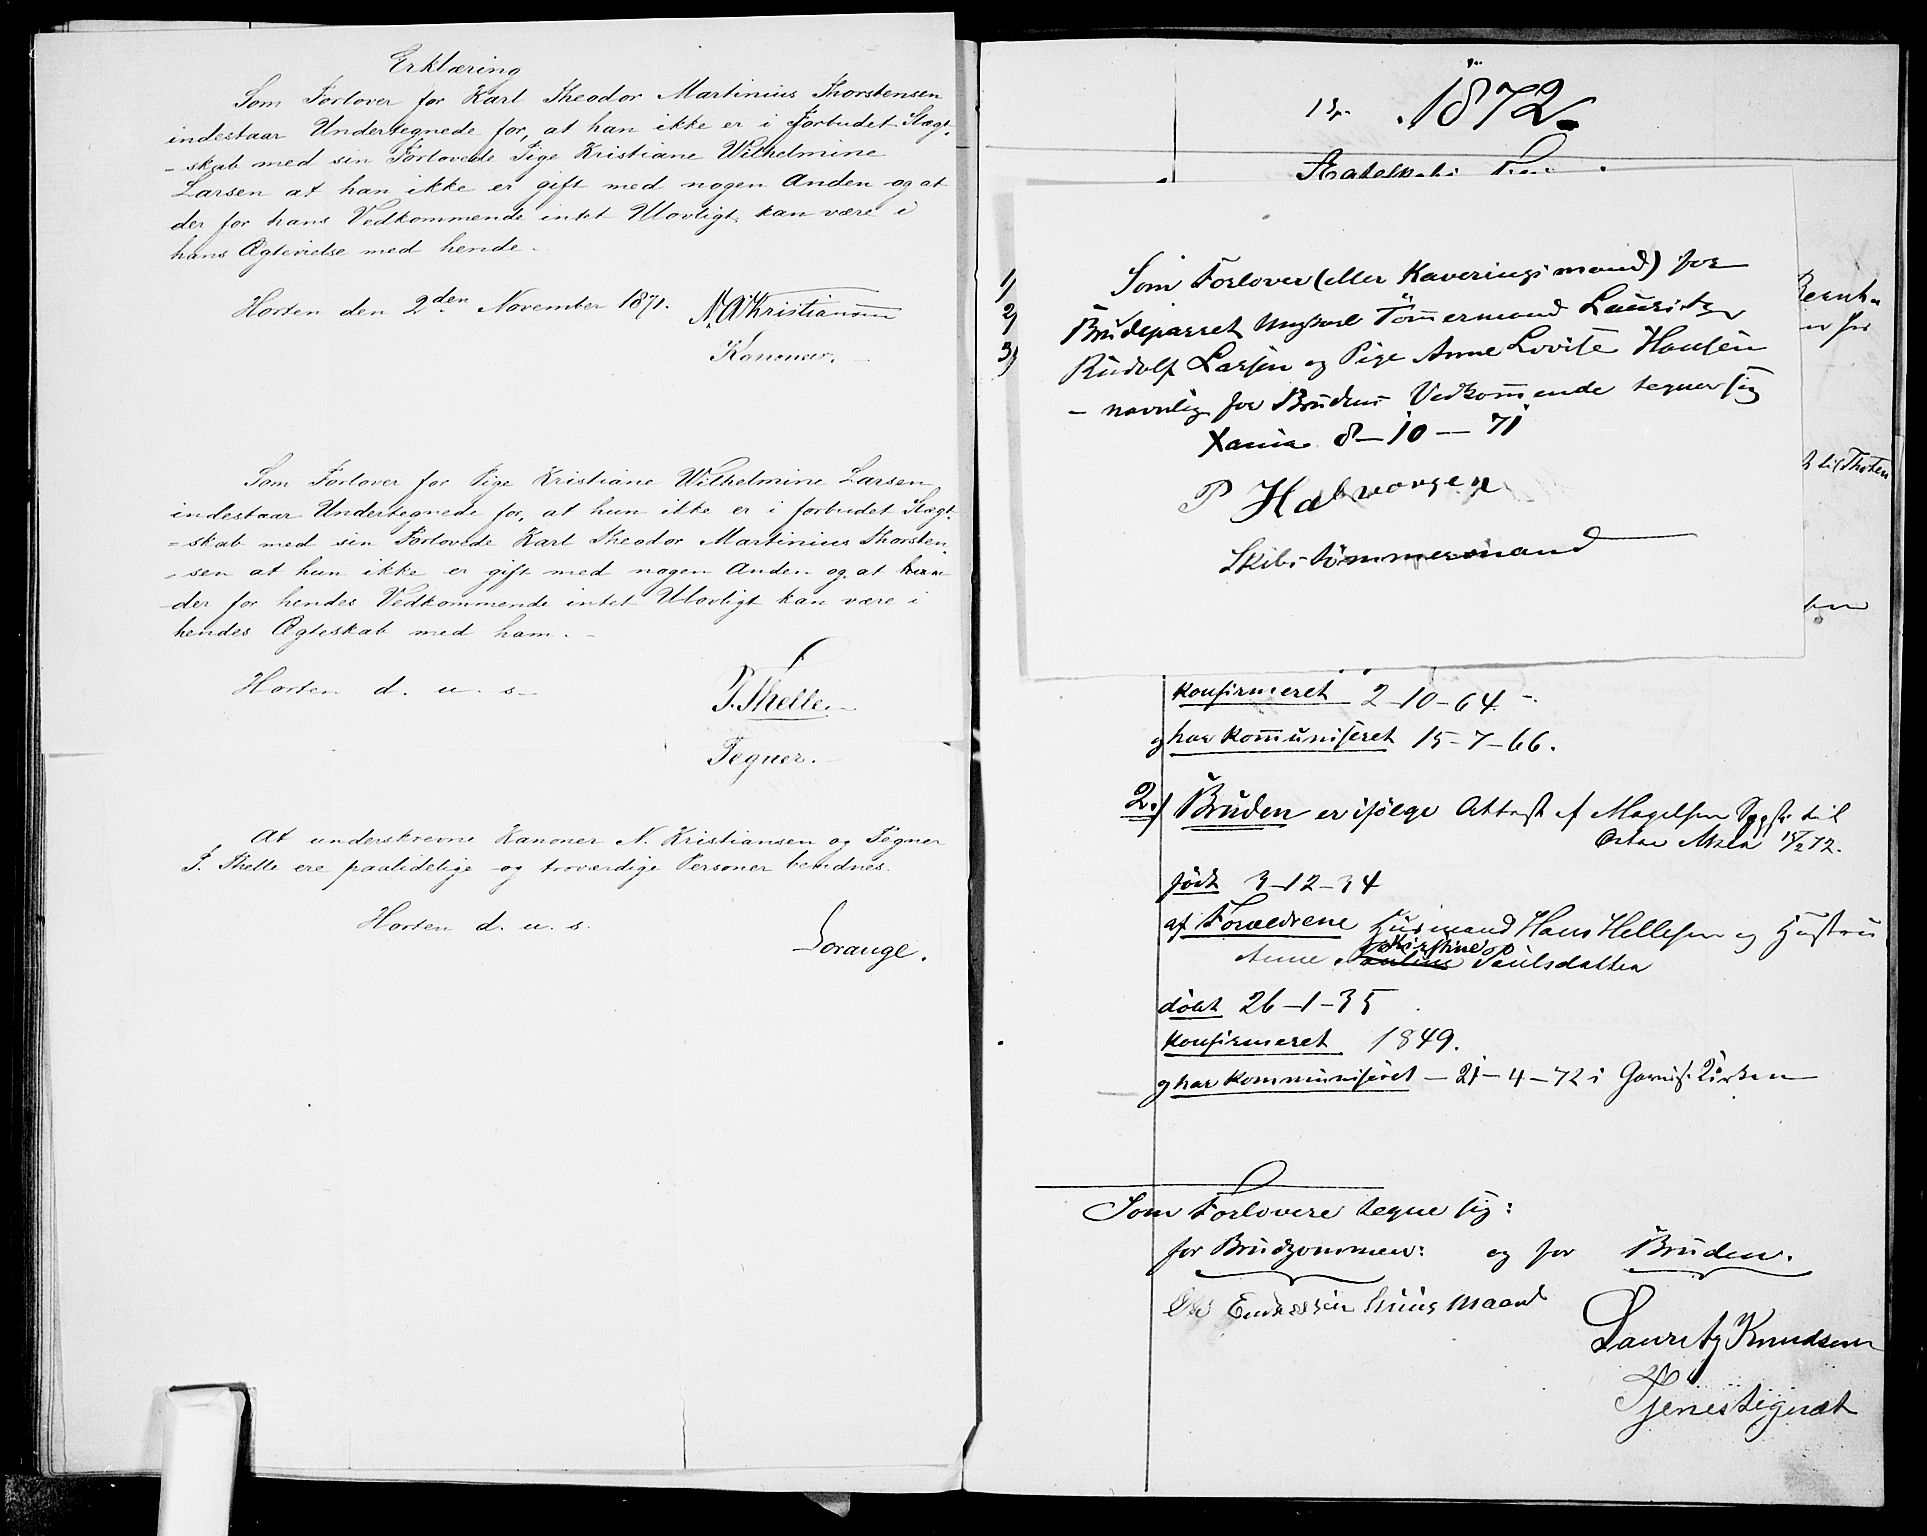 Erklæring
Som Forlover for Karl Theodor Martinius Thorstensen
indestaar Undertegnede for, at han ikke er i forbudet Slægt-
-skab med sin Forlovede Pige Kristiane Wilhelmine
Larsen at han ikke er gift med nogen Anden og at
der for hans Vedkommende intet Ulovligt kan være i
hans Ægtevielse med hende.
Horten den 2den November 1871. N. A Kristiansen
Kanoner.
Som Forlover for Pige Kristiane Wilhelmine Larsen
indestaar Undertegnede for, at hun ikke er i forbudet Slægt-
-skab med sin Forlovede Karl Theodor Martinius Thorsten-
-sen at hun ikke er gift med nogen Anden og at
der for hendes Vedkommende intet Ulovligt kan være i
hendes Ægteskab med ham.
Horten d. u. s.
P. Thelle.
Tegner.
At underskrevne Kanoner N. Kristiansen og Tegner
P. Thelle ere paalidelige og troværdige Personer bevidnes.
Horten d. u. s.
Lorange.
13. 1872.
1/
2/
3/
Som Forlover (eller Kaveringsmand) for
Brudeparret Ungkarl Tømermand Lauritz
Rudolf Larsen og Pige Anne Lovise Hansen
- navnlig for Brudens Vedkommende tegner sig
Xania 8-10-71
P Halvorsen
Skibstømmermand
til Thoten
konfirmeret 2-10-64.
og har kommuniseret 15-7-66.
2.) Bruden er ifølge Attest af Magelsen Sgpr. til
Østre Aker 15/2 72.
født 3-12-34
af Forældrene Husmand Hans Hellesen og Hustru
Anne Kirstine Paulsdatter
døbt 26-1-35
konfirmeret 1849.
og har kommuniseret - 21-4-72 i Garnis. Kirken
Som Forlovere tegne sig:
for Brudgommen: og for Bruden.
Lauritz Knudsen
Tjenestegut